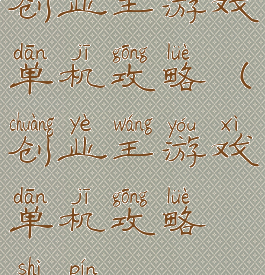 创业王游戏
dān jī gōng lüè
单机攻略（
chuàng yè wáng yóu xì
创业王游戏
dān jī gōng lüè
单机攻略
shì pín